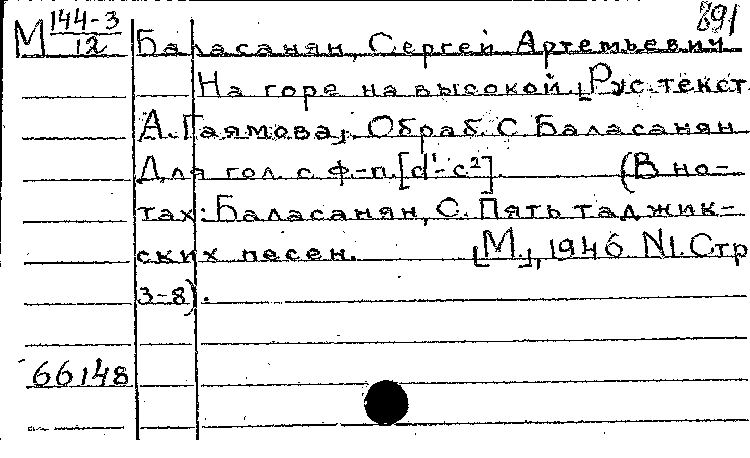 891
М 144-3/12 Баласанян, Сергей Артемьевич
На горе на высокой. [Рус. текст
А. Гаямова]. Обраб. С. Баласанян
Для гол. с ф-п. [d¹-c²]. (В но-
тах: Баласанян, С. Пять таджик-
ских песен. [М.], 1946 N1. Стр
3-8).
66148